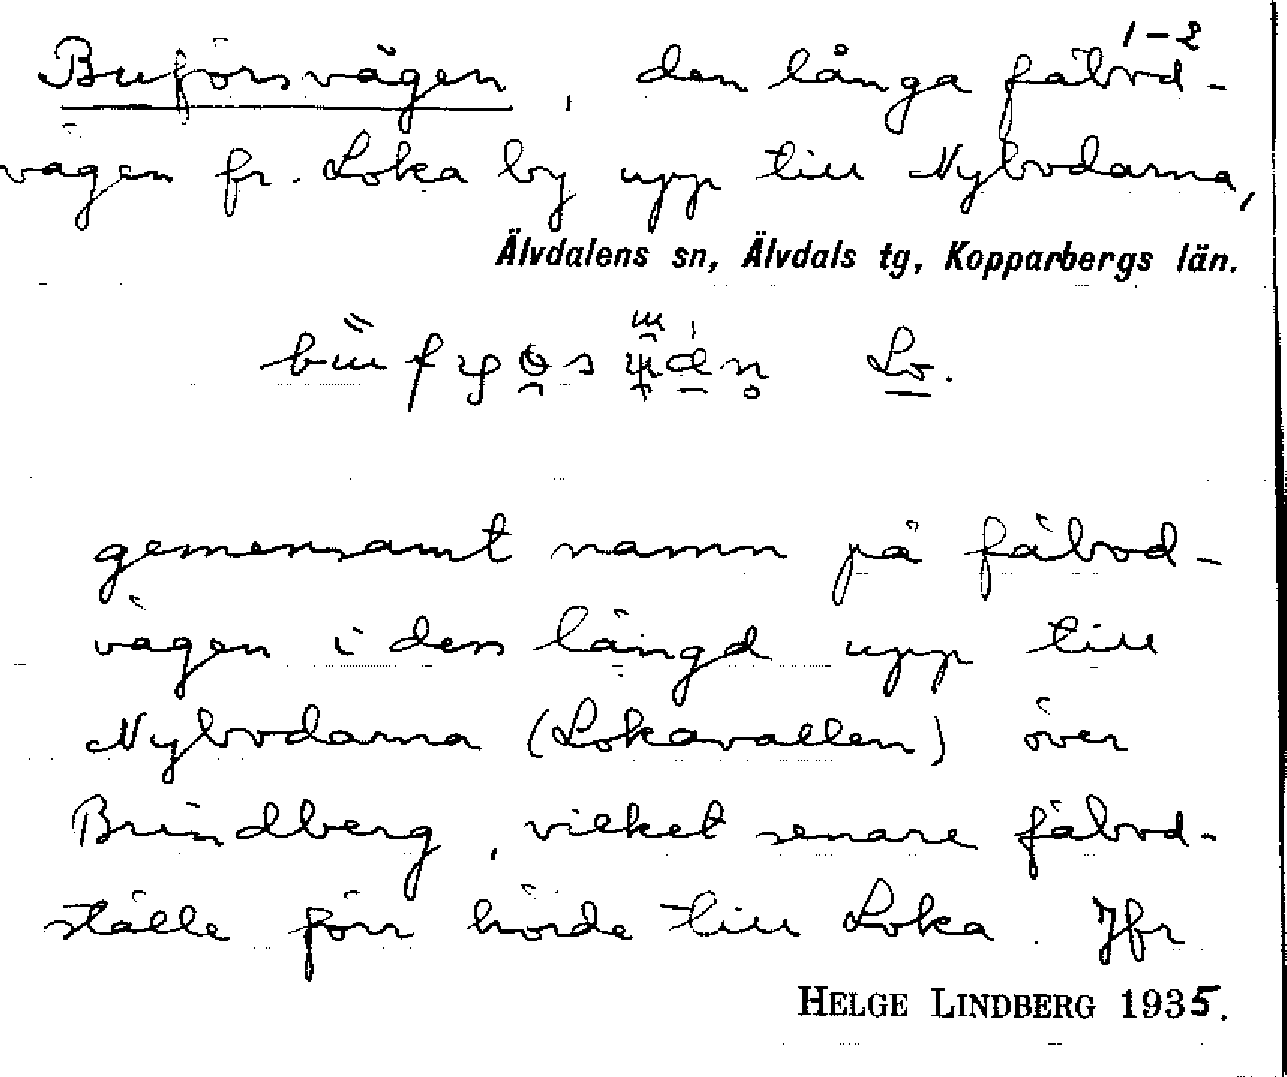 1-2
Buförsvägen, den långa fäbod-
vägen fr. Loka by upp till Nybodarna,
Älvdalens sn, Älvdals tg, Kopparbergs län.
Lo.
gemensamt namn på fäbod-
vägen i dess längd upp till
Nybodarna (Lokavallen) över
Brindberg, vilket senare fäbod-
ställe förr hörde till Loka. Jfr
HELGE LINDBERG 1935.